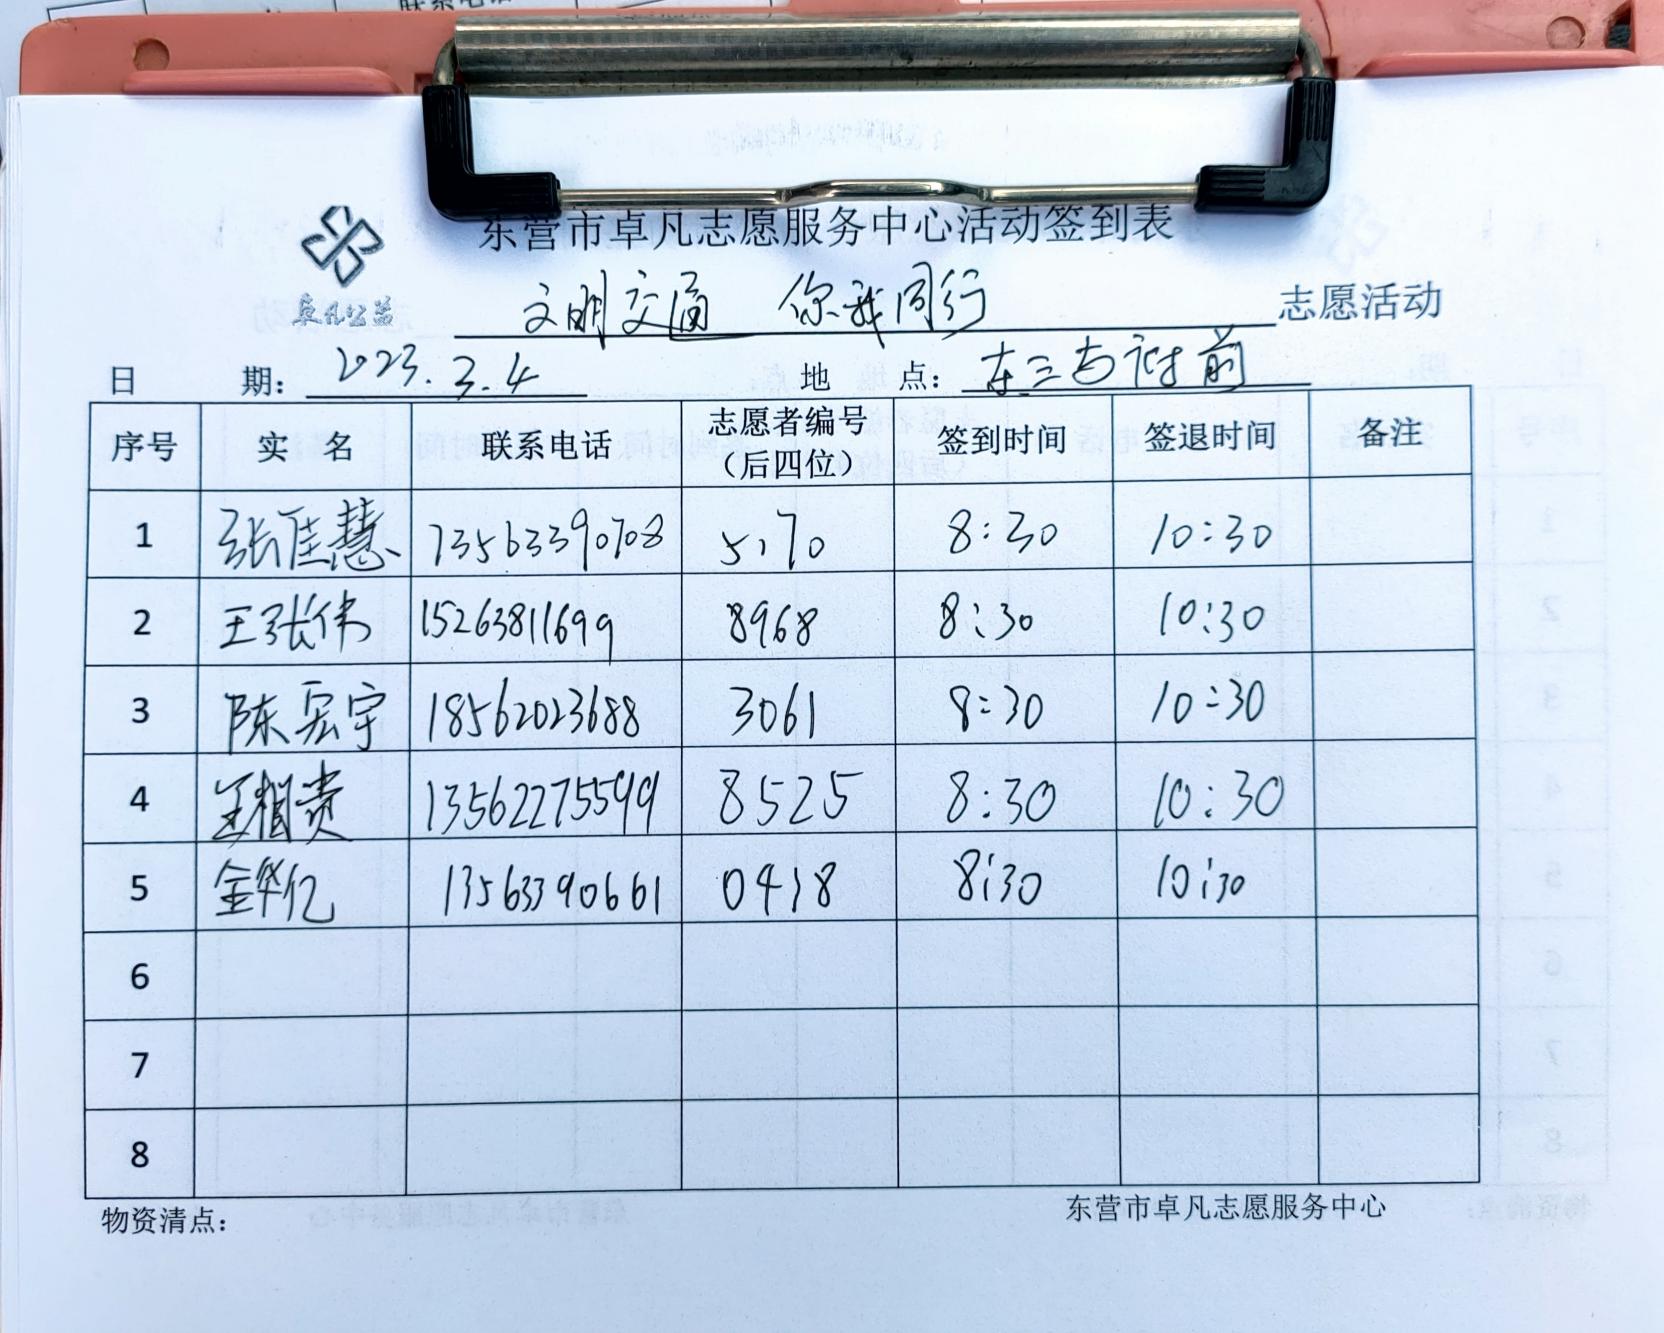 东营市卓凡志愿服务中心活动签到表
卓凡公益
文明交通 你我同行 志愿活动
日 期：2023.3.4 地 点：东三与 前
序号 实 名 联系电话 志愿者编号（后四位） 签到时间 签退时间 备注
1 张佳慧 13563390708 5170 8:30 10:30
2 王张伟 15263811699 8968 8:30 10:30
3 陈宏宇 18562023688 3061 8:30 10:30
4 贵 13562275599 8525 8:30 10:30
5 金华亿 13563390661 0418 8:30 10:30
6
7
8
物资清点： 东营市卓凡志愿服务中心